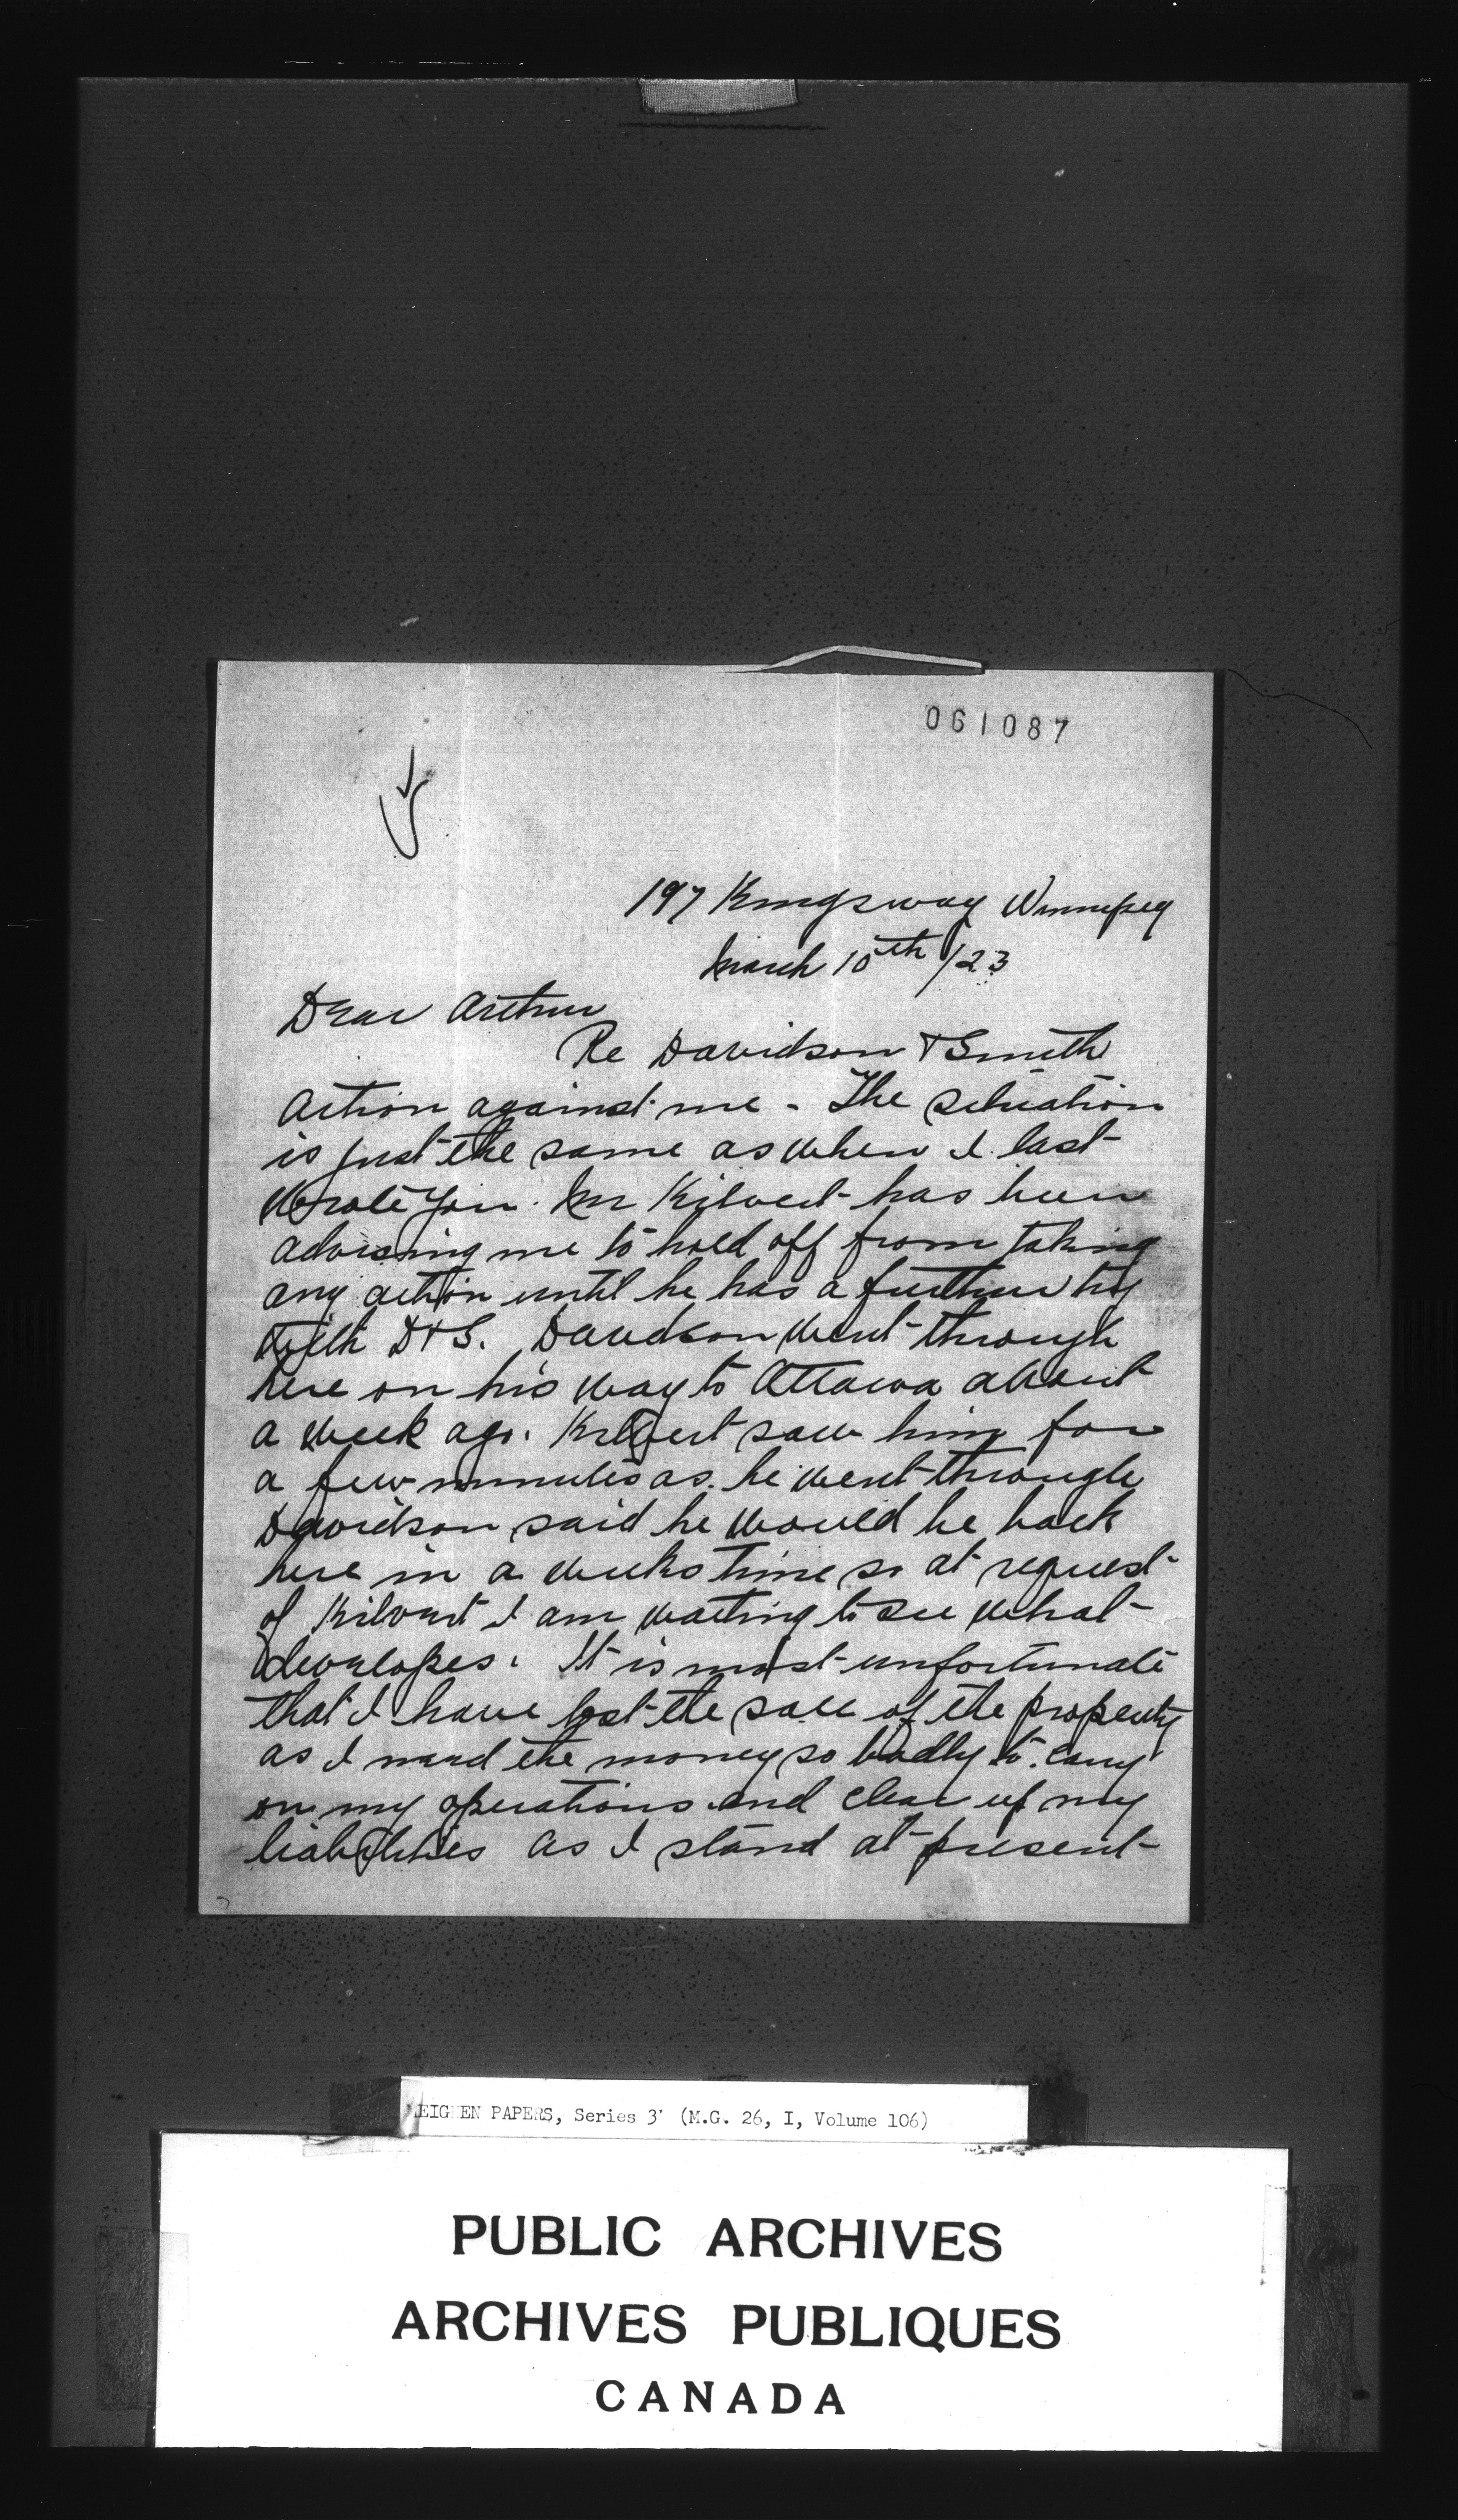 061087
197 Kingsway Winnipeg
March 10th/23
Dear Arthur
Re Davidson & Smith
Action against me - The situation
is just the same as when I last
wrote you. Mr Kilvert has been
advising me to hold off from taking
any action until he has a further try
with D & S. Davidson went through
here on his way to Ottawa about
a week ago. Kilvert saw him for
a few minutes as he went through
Davidson said he would be back
here in a weeks time so at request
of Kilvert I am waiting to see what
developes. It is most unfortunate
that I have lost the sale of the property
as I need the money so badly to carry
on my operations and clear up my
liabilities as I stand at present
EIGHEN PAPERS, Series 3 (M.G. 26, I, Volume 106)
PUBLIC ARCHIVES
ARCHIVES PUBLIQUES
CANADA